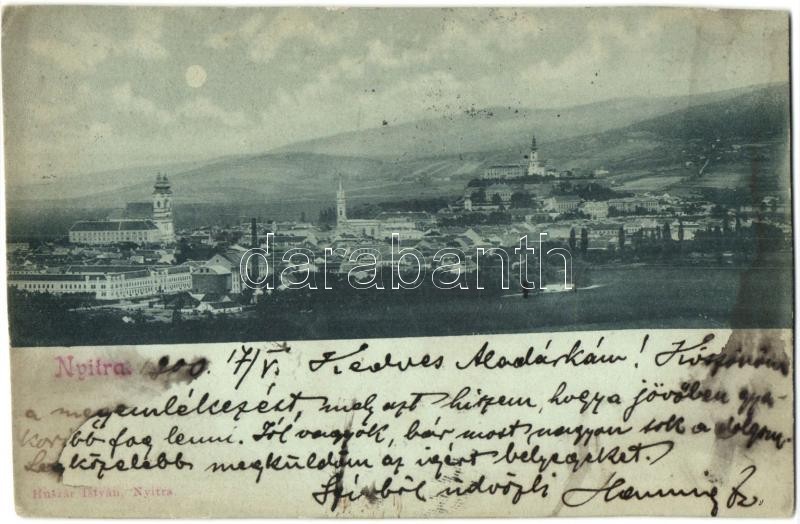 darabanth
Nyitra. 900. 17/V. Kedves Aladárkám! Köszönöm
a megemlékezést, mely azt hiszem, hogy a jövőben gya-
koribb fog lenni. Jól vagyok, bár most nagyon sok a dolgom.
Legközelebb megküldöm az igért belyegeket.
Szivből üdvözli
Huszár István, Nyitra